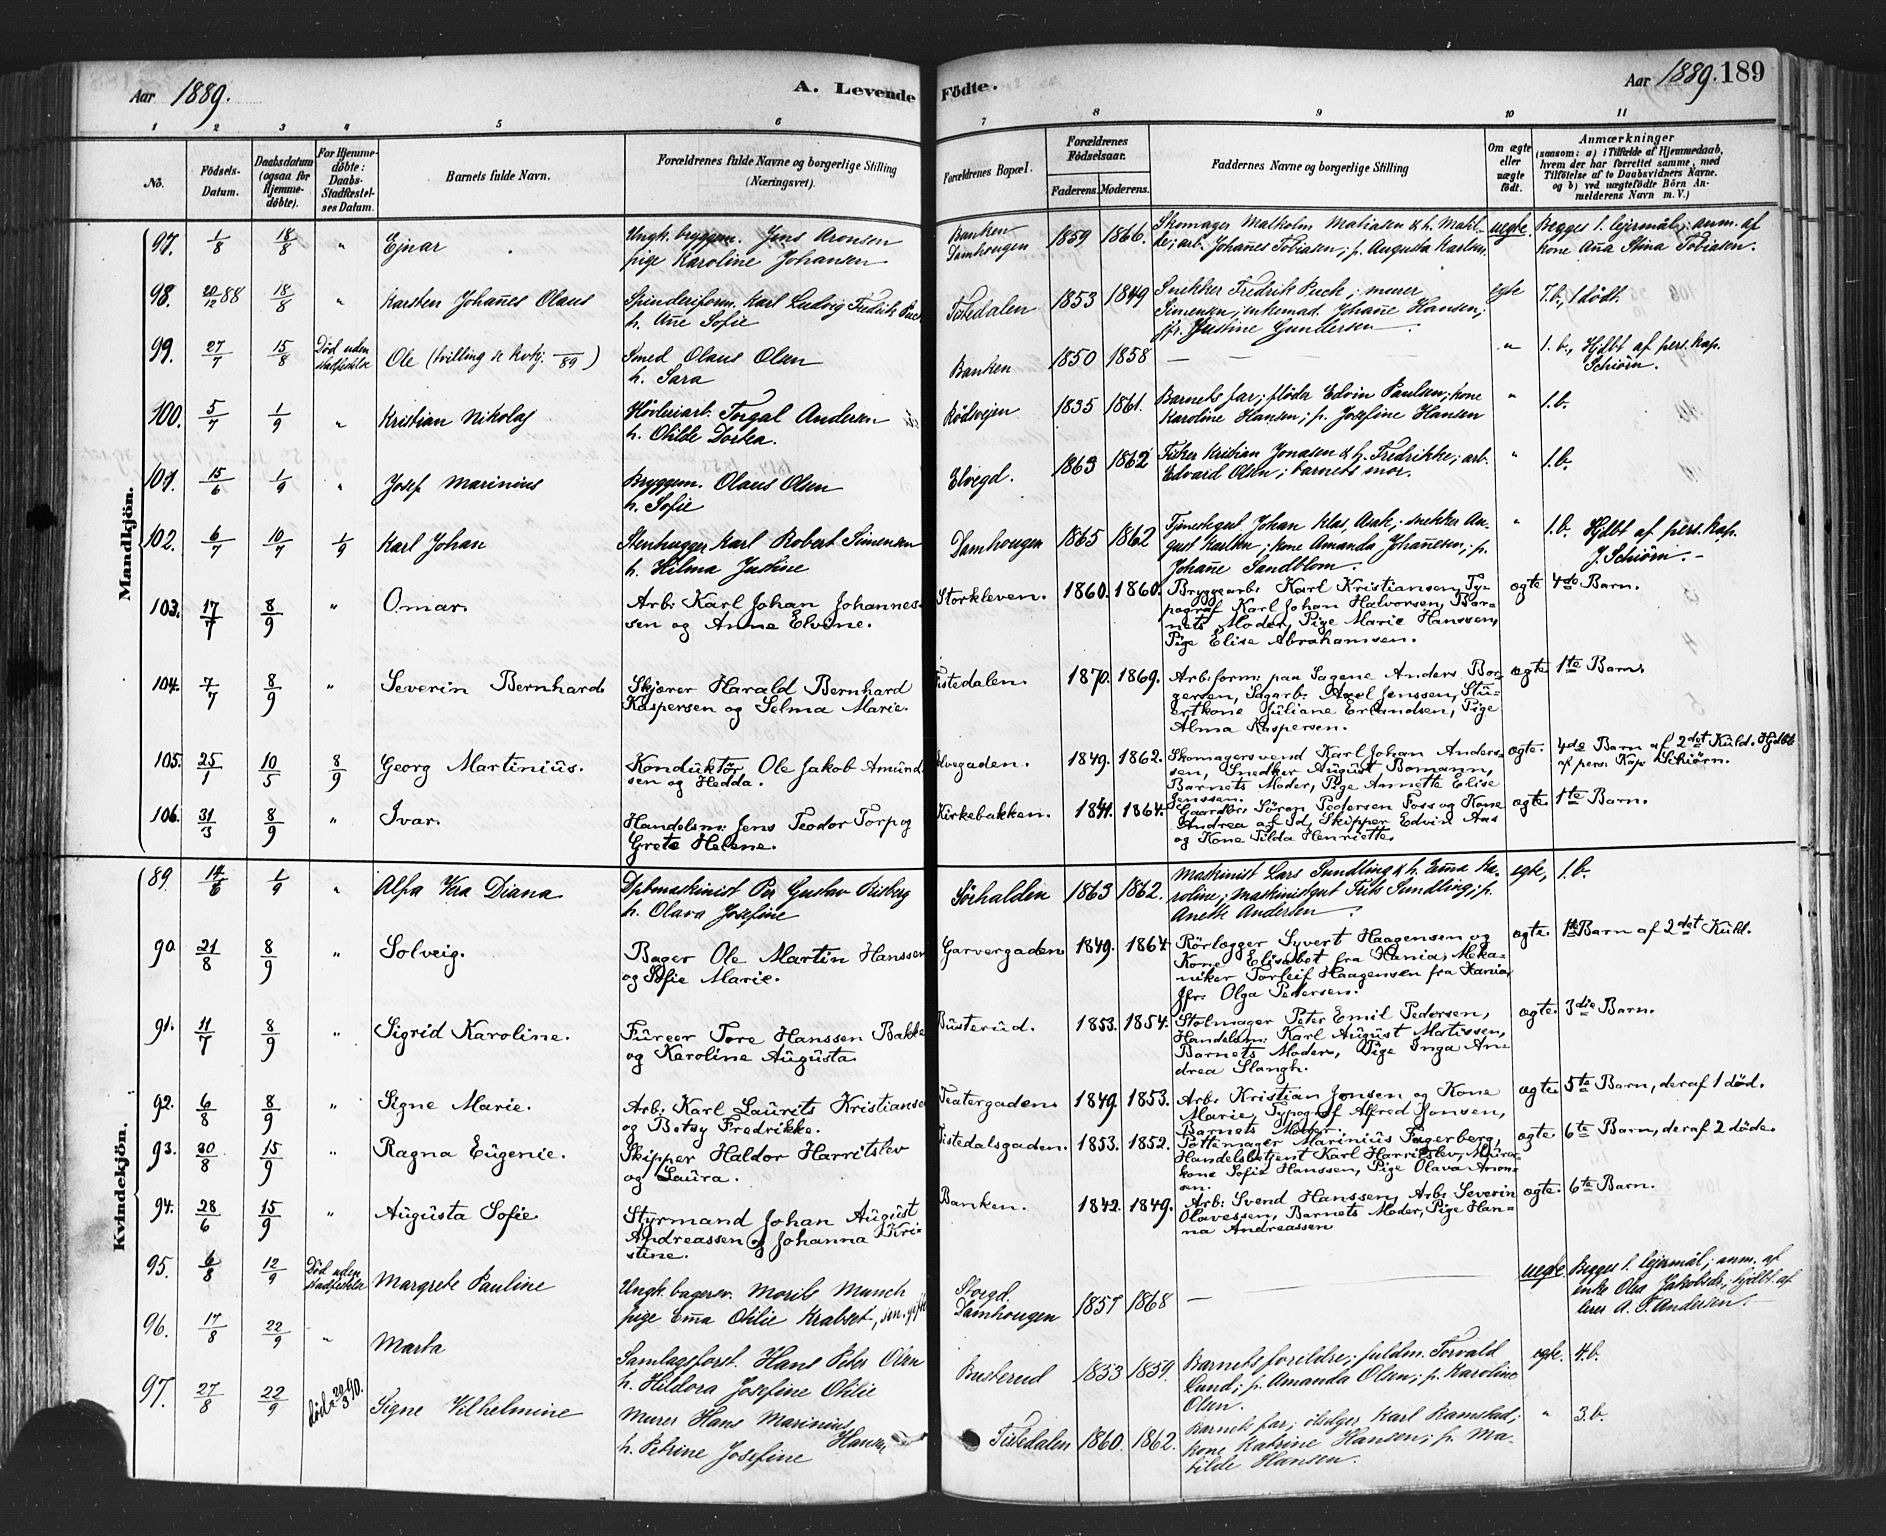 Aar 1889. A. Levende Fødte. Aar 1889. 189
1 2 3 4 5 6 7 8 9 10 11
No. Fødsels-Datum. Daabsdatum (ogsaa for Hjemmedøbte). For Hjemmedøbte: Daabs-Stadfæstelses Datum. Barnets fulde Navn. Forældrenes fulde Navne og borgerlige Stilling (Næringsvei). Forældrenes Bopæl. Forældrenes Fødselsaar. Faderens. Moderens. Faddernes Navne og borgerlige Stilling Om ægte eller uægte født. Anmærkninger (saasom: a) i Tilfælde af Hjemmedaab, hvem der har forrettet samme, med Tilføielse af to Daabsvidners Navne. og b) ved uægtefødte Børn Anmelderens Navn m. V.)
Mandkjön.
97. 1/8 18/8 " Ejnar Ungk. bryggem. Jens Aronsen
pige Karoline Johansen Banken Damhougen 1859 1866. Skomager Malkolm Matiasen & h. Mathilde; arb. Johañes Tobiasen; p. Augusta Karlsen uegte. Begges 1. lejermål; anm. af
kone Aña Stina Tobiasen.
98. 20/12 88 18/8 " Karsten Johañes Olaus Spinderiform. Karl Ludvig Fredrik Puck
h. Añe Sofie Tistedalen 1853 1849 Snekker Fredrik Puck; murer
Simensen; enkemad. Johañe Hansen;
jfr. Justine Gundersen egte 7. b., 1 dødt.
99. 27/7 15/8 Død uden stadfestelse Ole (tvilling se kvkj: /89) Smed Olaus Olsen
h. Sara Banken 1850 1858 — — " 1. b., Hjdbt af pers. kap.
Schiørn.
100. 5/7 1/9 " Kristian Nikolaj Høvleriarb. Torgal Andersen
h. Otilde Dorka. Rødvejen 1835 1861. Barnets far; fløder Edvin Paulsen; kone
Karoline Hansen; p. Josefine Hansen " 1. b.
101. 15/6 1/9 " Josef Marinius Bryggem. Olaus Olsen
h. Sofie Elvegd. 1863 1862 Fisker Kristian Jonasen & h. Fredrikke; arb.
Edvard Olsen; barnets mor. " 1. b.
102. 6/7 10/7 1/9 Karl Johan Stenhugger Karl Robert Simensen
h. Hilma Justine Damhougen 1865 1862 Tjenestegut Johan Klas, Ank; snekker August Karlsen; kone Amanda Johañesen; p.
Johañe Sandblom. " 1. b. Hjdbt af pers. kap.
J. Schiørn.
103. 17/7 8/9 " Omar. Arb: Karl Johan Johannessen og Anna Elvine. Storkleven. 1860. 1860. Bryggearb: Karl Kristiansen, Typograf Karl Johan Halvorsen, Barnets Moder, Pige Marie Hanssen,
Pige Elise Abrahamsen. ægte 4de Barn.
104. 7/7 8/9 " Severin Bernhard. Skjærer Harald Bernhard
Kaspersen og Selma Marie. Tistedalen. 1870. 1869. Arb: form: paa Sagene Anders Borgersen, Sagarb: Axel Jenssen, Stuertkone Juliane Erlandsen, Pige
Alma Kaspersen. ægte 1te Barn.
105. 25/1 10/5 8/9 Georg Martinius. Konduktør Ole Jakob Amundsen og Hedda. Elvegaden. 1849. 1862. Skomagersvend Karl Johan Anderssen, Snedker August Bomann,
Barnets Moder, Pige Annette Elise
Jenssen. ægte. 4de Barn af 2det Kuld. Hjdbt
af pers: Kap Schiørn.
106. 31/3 8/9 " Ivar. Handelsm: Jens Teodor Torp og
Grete Helene. Kirkebakken. 1841. 1864. Gaardbr: Søren Pedersen Foss og Kone
Andrea af Id, Skipper Edvin Aas
og Kone Tilda Henriette. ægte. 1te Barn.
Kvindekjön.
89. 14/6 1/9 " Alfa Vera Diana Dpbmaskinist Per Gustav Risberg
h. Olava Josefine Sørhalden 1863 1862. Maskinist Lars Sundling & h. Ema Karoline; maskinistgut Frits Sundling; p.
Anette Andersen egte, 1. b.
90. 21/8 8/9 " Solveig. Bager Ole Martin Hanssen
og Sofie Marie. Garvergaden 1849. 1864. Rørlægger Syvert Haagensen og
Kone Elisabet fra Xania, Mekaniker Torleif Haagensen fra Xania,
Jfr: Olga Pedersen. ægte. 1te Barn af 2det Kuld.
91. 11/7 8/9 " Sigrid Karoline. Furer Tore Hanssen Bakke
og Karoline Augusta. Busterud. 1853. 1854. Stolmager Peter Emil Pedersen,
Handelsm: Karl August Matissen,
Barnets Moder, Pige Inga Andrea Slangh. ægte. 3die Barn.
92. 6/8 8/9 " Signe Marie. Arb: Karl Laurits Kristiansen
og Betsy Fredrikke. Teatergaden. 1849. 1853. Arb: Kristian Jonsen og Kone
Marie, Typograf Alfred Jonsen,
Barnets Moder. ægte. 5te Barn, deraf 1 død.
93. 30/8 15/9 " Ragna Eugenie. Skipper Haldor Harritslev
og Laura. Tistedalsgaden. 1853. 1852. Pottemager Marinius Fagerberg,
Handelsbetjent Karl Harritslev, Murerkone Sofie Hanssen, Pige Olava Aronsen. ægte. 6te Barn, deraf 2 døde.
94. 28/6 15/9 " Augusta Sofie. Styrmand Johan August
Andreassen og Johanna Kristine. Banken. 1842. 1849. Arb: Svend Hanssen, Arb: Severin
Olavessen, Barnets Moder, Pige Hanna Andreassen ægte. 6te Barn.
95. 6/8 12/9 Død uden stadfestelse Margrete Pauline Ungk. bagersv. Morits Munch
pige Ema Otilie Krabset, sen. gift Storgd. Damhougen 1857 1868 — — uegte Begges 1. lejermål; anm. af
enke Olea Jakobsdr.; hjdbt. af
lærer A. T. Andersen.
96. 17/8 22/9 " Marta Samlagsforst. Hans Peter Olsen
h. Hildora Josefine Otilie Busterud 1853 1859. Barnets forældre; fuldm. Torvald
Lund; p. Amanda Olsen; p. Karoline
Olsen. egte. 4. b.
97. 27/8 22/9 død 20/3 90. Signe Vilhelmine Murer Hans Marinius Hansen
h. Petrine Josefine Tistedalen 1860. 1862. Barnets far; ølselger Karl Ramstad;
kone Katrine Hansen; p. Matilde Hansen. " 3. b.